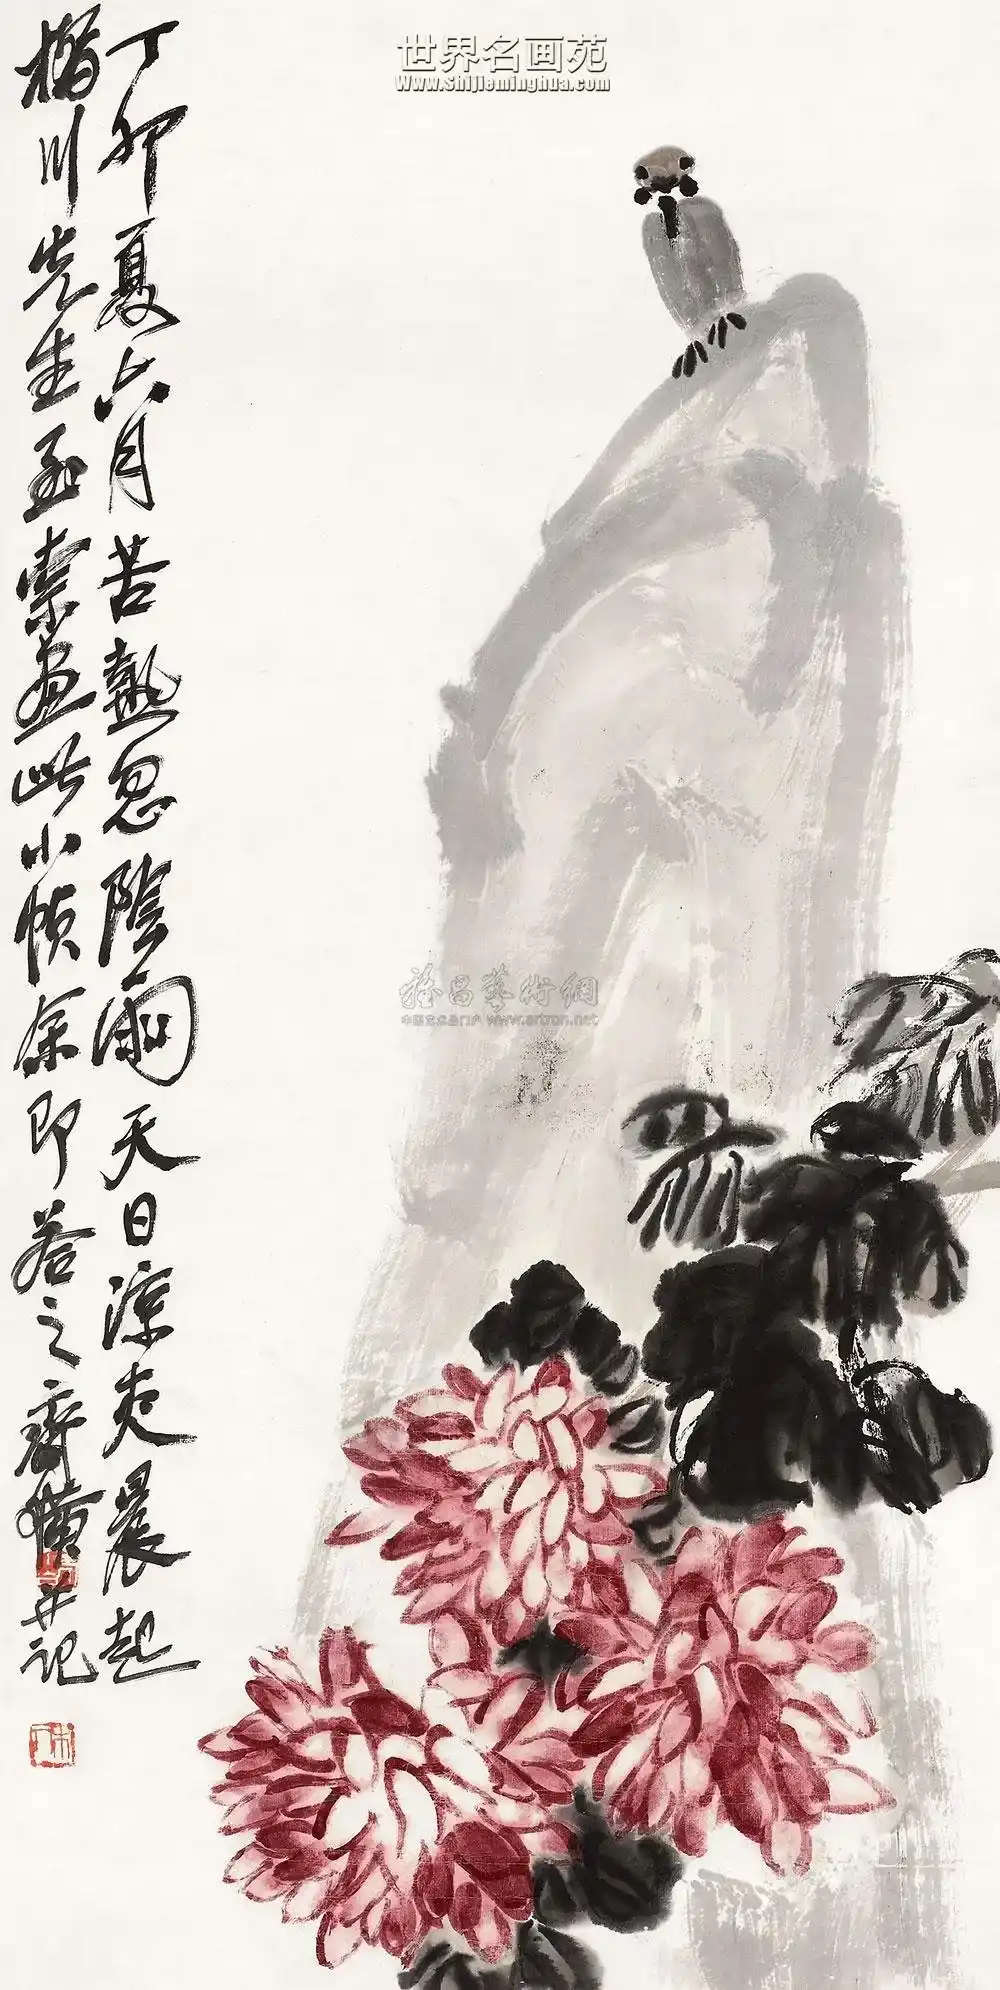 世界名画苑
www.Shijieminghua.com
丁卯夏六月苦熱忽陰雨天日涼爽晨起
楷川先生函索画此小幀余即答之齊璜并記
雅昌藝術網
中国艺术品门户 www.artron.net